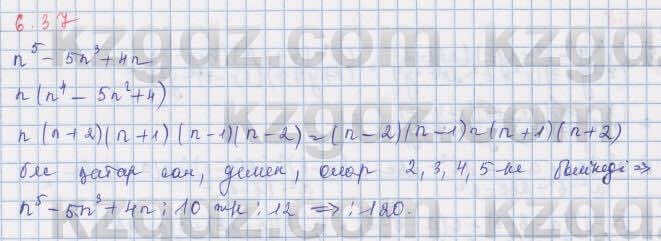 6.37
n⁵ - 5n³ + 4n
n(n⁴ - 5n² + 4)
n(n+2)(n+1)(n-1)(n-2) = (n-2)(n-1)n(n+1)(n+2)
бес қатар сан, демек, олар 2, 3, 4, 5-ке бөлінеді ⇒
n⁵ - 5n³ + 4n ⋮ 10 және ⋮ 12 ⇒ ⋮ 120.
kzgdz.com